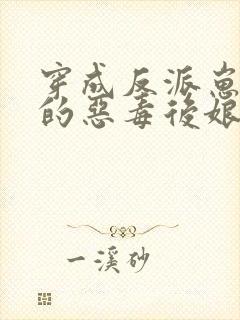 穿成反派崽
的惡毒後娘
一溪砂